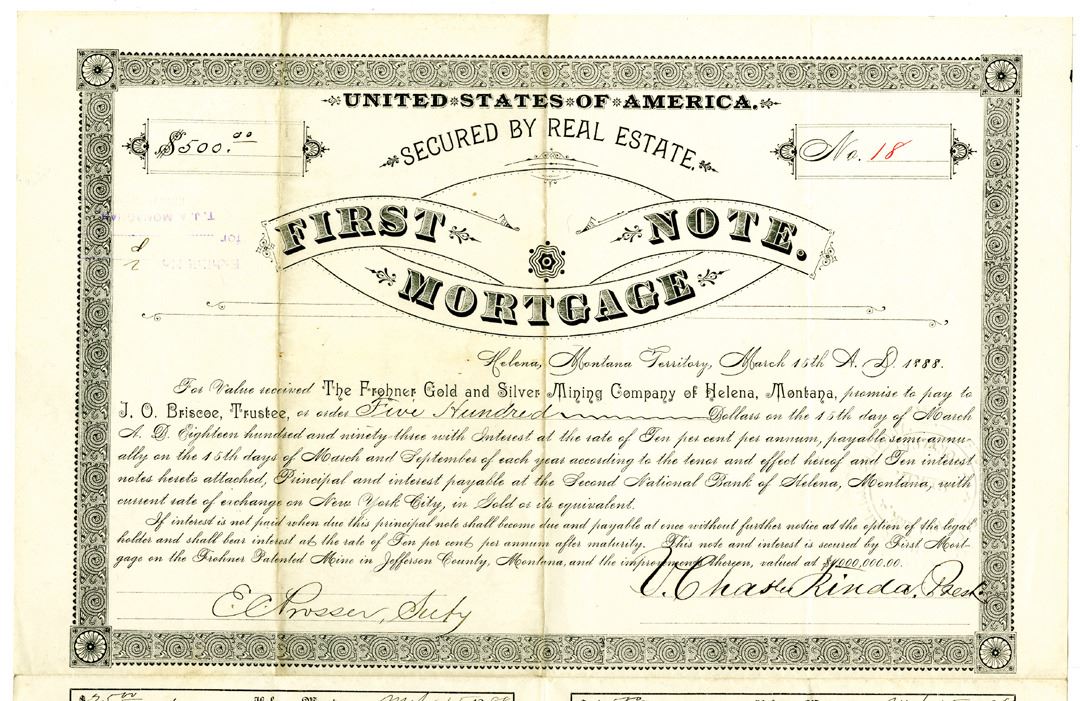 UNITED STATES OF AMERICA.
SECURED BY REAL ESTATE.
$500.00
No. 18
FIRST
NOTE.
MORTGAGE
Helena, Montana Territory, March 15th A. D. 1888.
For Value received The Frohner Gold and Silver Mining Company of Helena, Montana, promise to pay to
J. O. Briscoe, Trustee, or order Five Hundred Dollars on the 15th day of March
A. D. Eighteen hundred and ninety-three with Interest at the rate of Ten per cent per annum, payable semi-annu-
ally on the 15th days of March and September of each year according to the tenor and effect hereof and Ten interest
notes hereto attached, Principal and interest payable at the Second National Bank of Helena, Montana, with
current rate of exchange on New York City, in Gold or its equivalent.
If interest is not paid when due this principal note shall become due and payable at once without further notice at the option of the legal
holder and shall bear interest at the rate of Ten per cent per annum after maturity. This note and interest is secured by First Mort-
gage on the Frohner Patented Mine in Jefferson County, Montana, and the improvements thereon, valued at $1,000,000.00.
E C Prosser, Secty